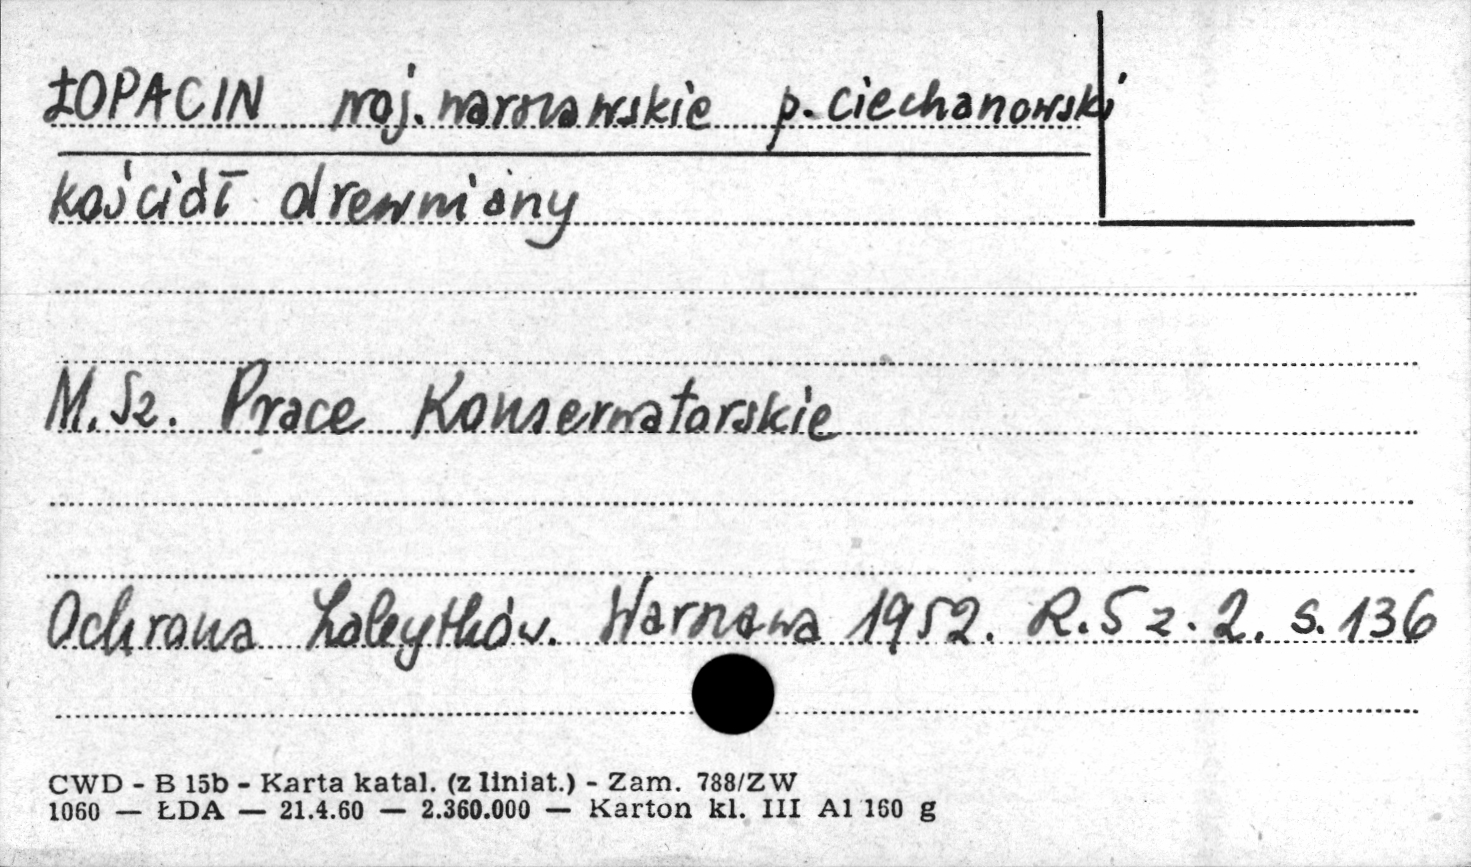 ŁOPACIN woj. warszawskie p. ciechanowski
kościół drewniany
M. Sz. Prace Konserwatorskie
Ochrona Zabytków. Warszawa 1952. R. 5 z. 2. s. 136
CWD - B 15b - Karta katal. (z liniat.) - Zam. 788/ZW
1060 — ŁDA — 21.4.60 — 2.360.000 — Karton kl. III A1 160 g